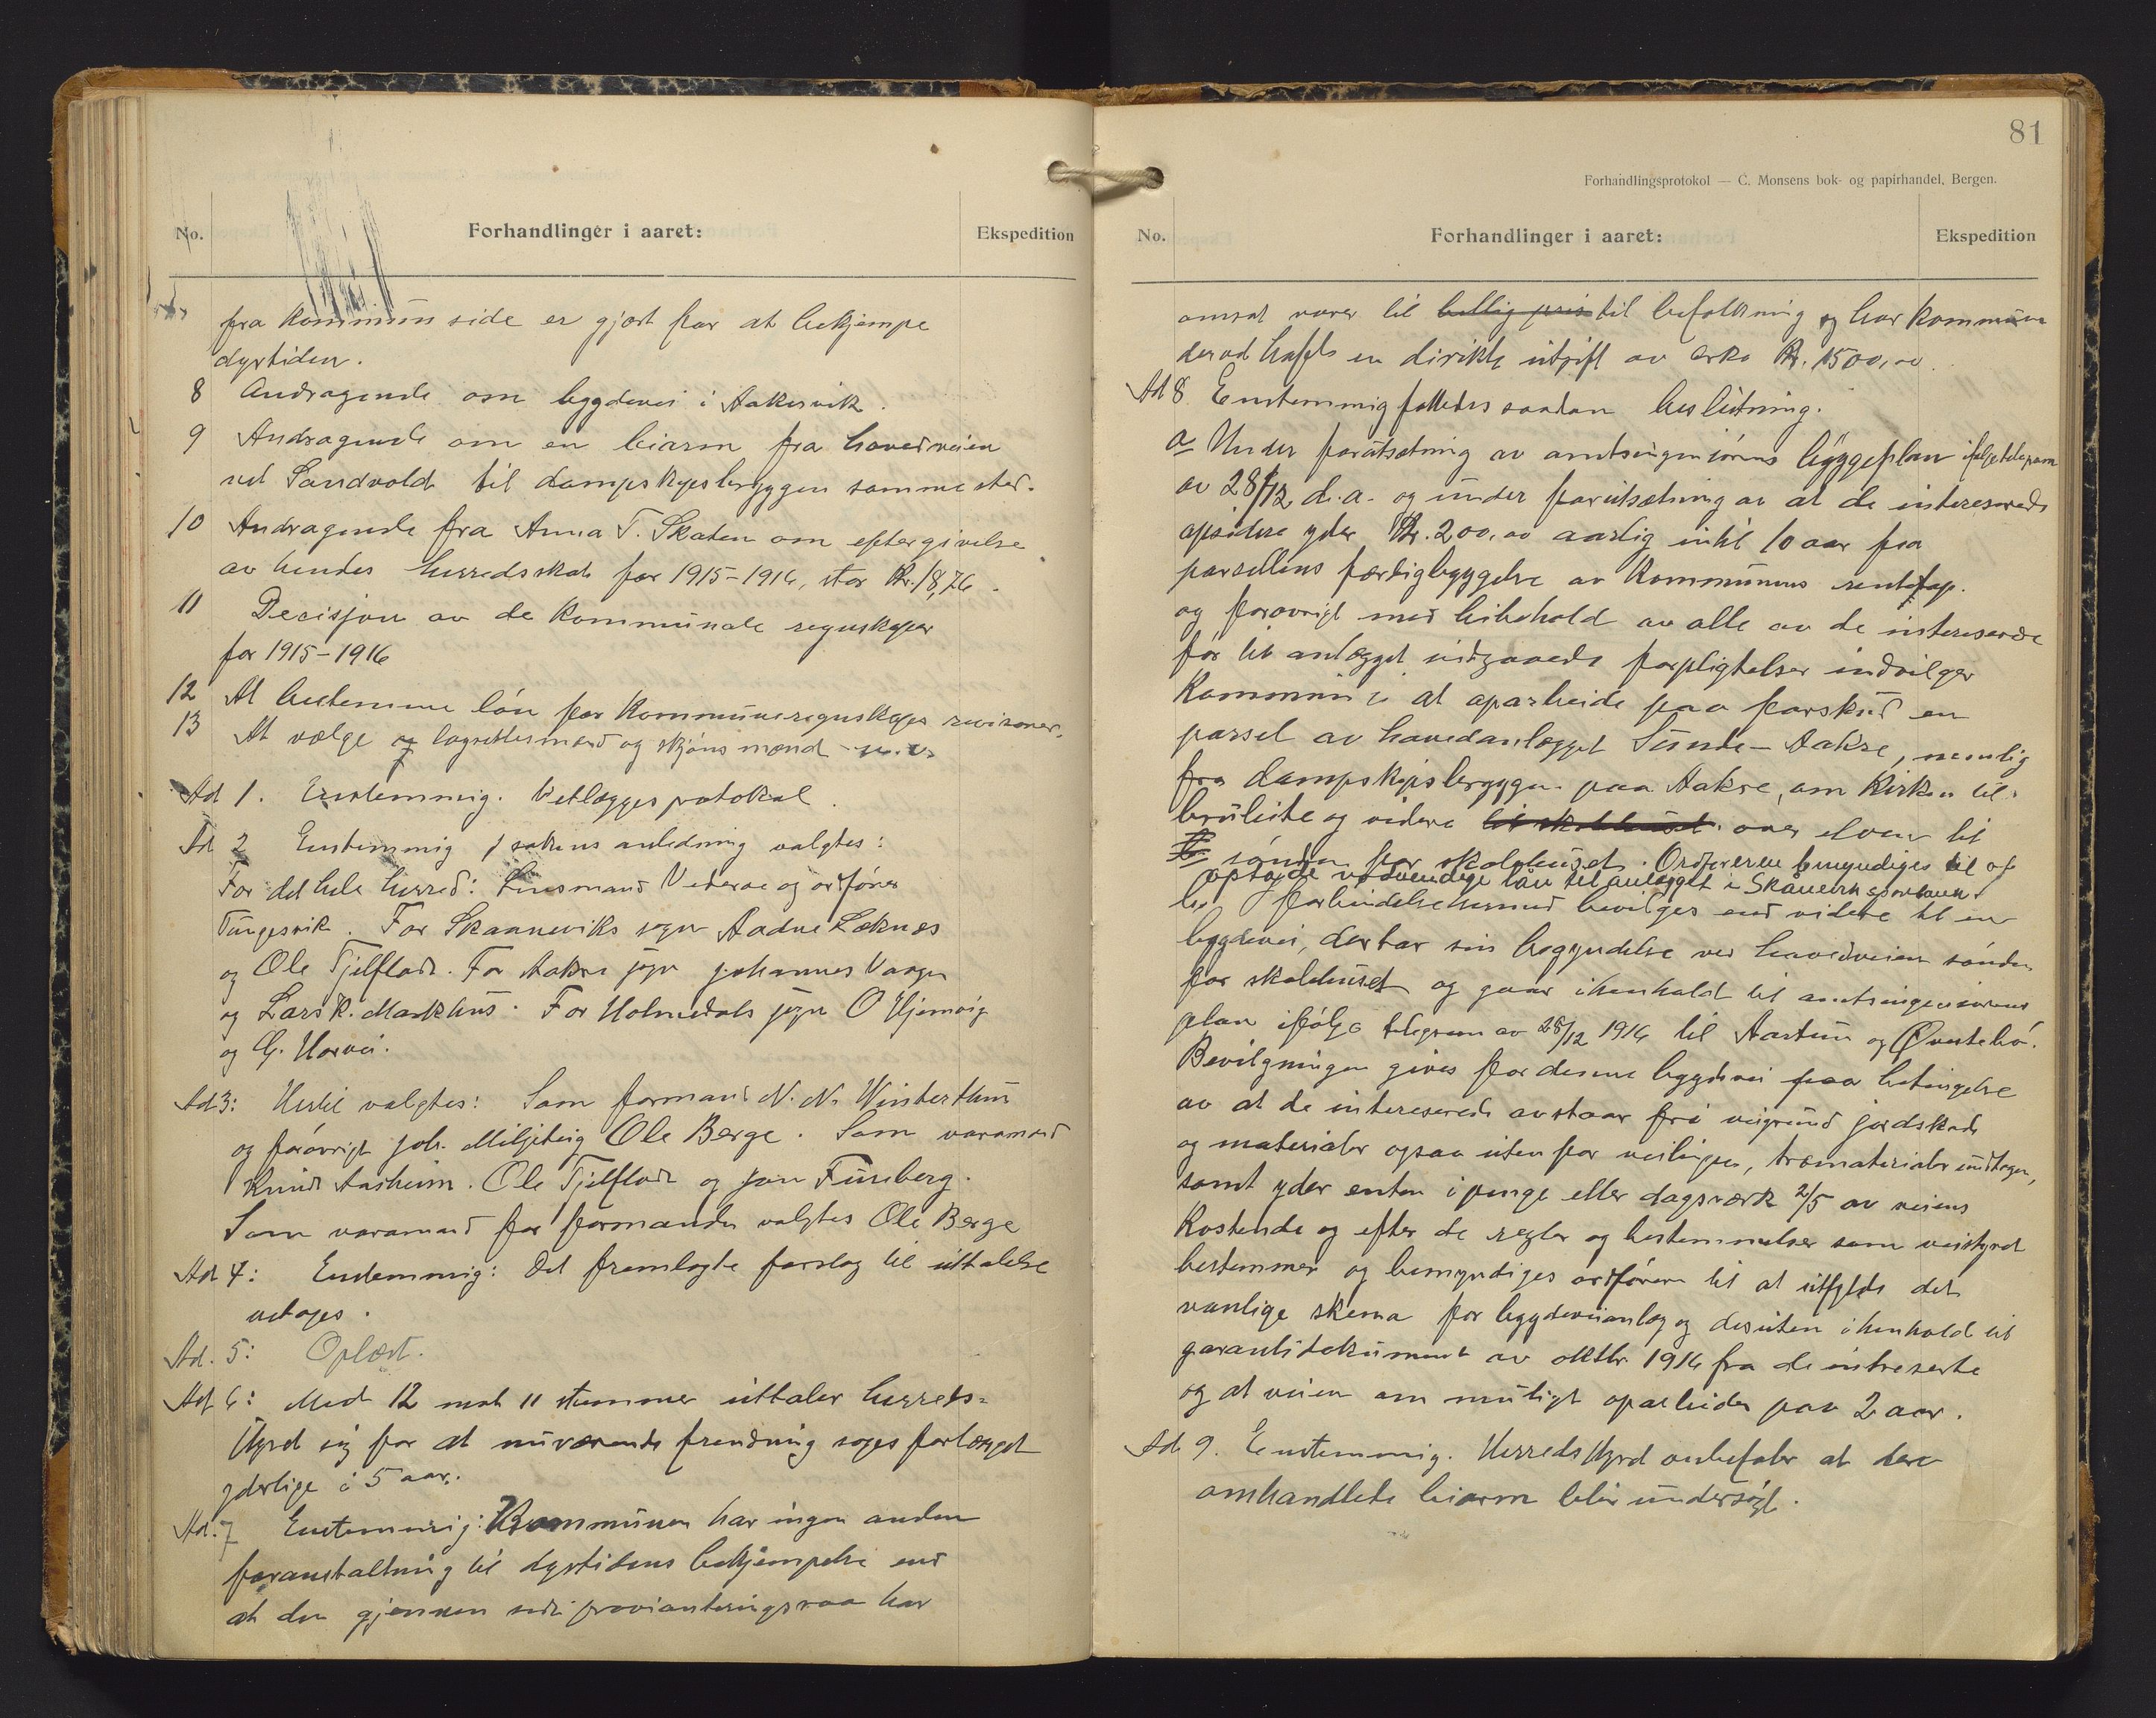 No. Forhandlinger i aaret: Ekspedition
fra kommun side er gjort for at bekjempe
dyrtiden.
8 Andragende om bygdevei i Aakervik.
9 Andragende om en biarm fra hovedveien
ved Sandvold til dampskipsbryggen sammested.
10 Andragende fra Anna T. Skaten om eftergivelse
av hendes herredsskat for 1915-1916, stor Kr. 18,76.
11 Decisjon av de kommunale regnskaper
for 1915-1916
12 At bestemme løn for kommuneregnskaps revisorer.
13 At vælge og lagrettesmænd og skjøns mænd m.v.
Ad 1. Enstemmig. Vedlægges protokol.
Ad 2 Enstemmig i sakens anledning valgtes:
For det hele herred: Lensmand Vederoe og ordfører
Tungesvik. For Skaaneviks sogn Aadne Læknæs
og Ole Tjelflodt. For Aakre sogn Johannes Vaage
og Lars K. Markhus. For Holmedals sogn O Ljemøig
og G. Horvei.
Ad 3: Hertil valgtes: Som formand N. N. Winterthun
og forøvrigt Joh. Miljeteig Ole Berge. Som varamænd
Knud Aasheim. Ole Tjelflodt og Jon Funberg.
Som varamand for formanden valgtes Ole Berge
Ad 4: Enstemmig: Det fremlagte forslag til uttalelse
vetages.
Ad. 5: Oplæst.
Ad 6: Med 12 mot 11 stemmer uttaler herreds-
styret sig for at nuværende fredning søges forlænget
yderlige i 5 aar.
Ad. 7 Enstemmig: Kommunen har ingen anden
foranstaltning til dyrtidens bekjæmpelse end
at den gjennem sit provianteringsraa har
81
Forhandlingsprotokol — C. Monsens bok- og papirhandel, Bergen.
No. Forhandlinger i aaret: Ekspedition
omsat varer til billig pris til befolkning og har kommunen
derved hafts en dirikte utgift av cirka Kr. 1500,00.
Ad 8 Enstemmig fattedes saadan beslutning.
a Under forutsætning av amtsingeniørens byggeplan ifølge telegram
av 28/12 d.a. og under forutsætning av at de interesserede
opsidere yder Kr. 200,00 aarlig intil 10 aar fra
parsellens færdigbyggelse av kommunens rentetap.
og forøvrigt med bibehold av alle av de interesserede
før til anlægget indgaaede forpligtelser indvilger
kommun i at oparbeide paa forskud en
parsel av hovedanlægget Sunde-Aakre, nemlig
fra dampskipsbryggen paa Aakre, om kirken til
bruleite og videre til skolehuset over elven til
sønden for skolehuset. Ordføreren bemyndiges til at
optage nødvendige lån til anlægget i Skånevik sparbank
b. I forbindelse hermed bevilges end videre til en
bygdevei, der tar sin begyndelse ved hovedveien sønden
for skolehuset og gaar i henhold til amtsingeniørens
plan ifølge telegram av 28/12 1916 til Aartun og Øvstebø.
Bevilgningen gives for denne bygdevei paa betingelse
av at de interesserede avstaar fri veigrund jordskade
og materialer ogsaa uten for veilinjen, træmaterialer undtagen,
samt yder enten i penge eller dagsværk 2/5 av veiens
kostende og efter de regler og bestemmelser som veistyret
bestemmer og bemyndiges ordføreren til at utfylde det
vanlige skema for bygdeveianlæg og desuten i henhold til
garantidokument av oktbr 1916 fra de intreserte
og at veien om muligt oparbeides paa 2 aar.
Ad 9. Enstemmig. Herredsstyret anbefaler at den
omhandlede biarm blir undersøgt.